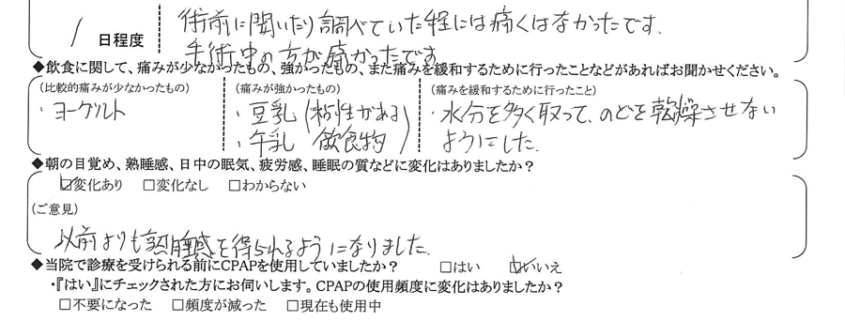 術前に聞いたり調べていた程には痛くはなかったです.
1 日程度
手術中の方が痛かったです
◆飲食に関して、痛みが少なかったもの、強かったもの、また痛みを緩和するために行ったことなどがあればお聞かせください。
(比較的痛みが少なかったもの) (痛みが強かったもの) (痛みを緩和するために行ったこと)
・ヨーグルト ・豆乳 (粘性がある ・水分を多く取って、のどを乾燥させない
・牛乳 飲食物) ようにした.
◆朝の目覚め、熟睡感、日中の眠気、疲労感、睡眠の質などに変化はありましたか?
☑変化あり □変化なし □わからない
(ご意見)
以前よりも熟睡感を得られるようになりました.
◆当院で診療を受けられる前にCPAPを使用していましたか? □はい ☑いいえ
・『はい』にチェックされた方にお伺いします。CPAPの使用頻度に変化はありましたか?
□不要になった □頻度が減った □現在も使用中